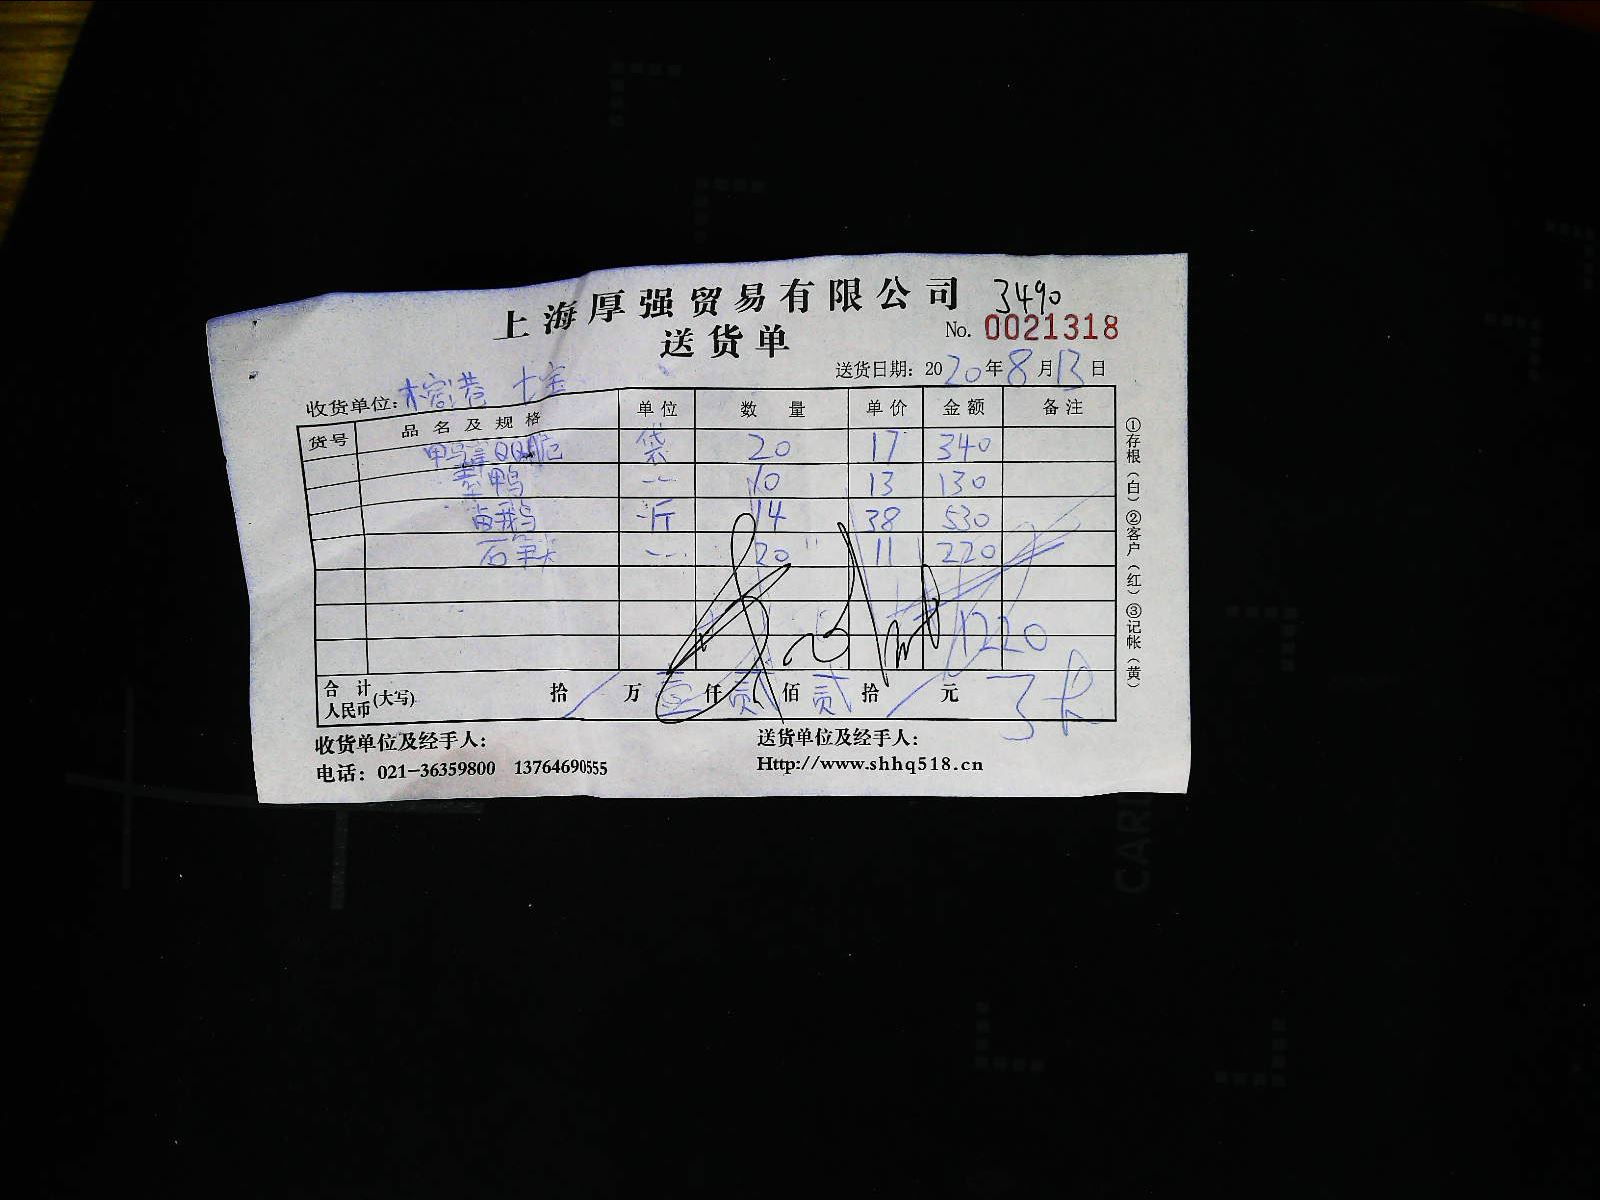 上海厚强贸易有限公司 3490
送货单 No. 0021318
送货日期: 2020年8月13日
收货单位: 榕港 七宝
货号 品名及规格 单位 数量 单价 金额 备注
QQ 袋 20 17 340
素鸭 10 13 130
卤鹅 斤 14 38 530
20 11 220
1220
合计人民币(大写) 拾 万 壹 仟 贰 佰 贰 拾 元
收货单位及经手人: 送货单位及经手人:
电话: 021-36359800 13764690555 Http://www.shhq518.cn
①存根(白)②客户(红)③记帐(黄)
CARL